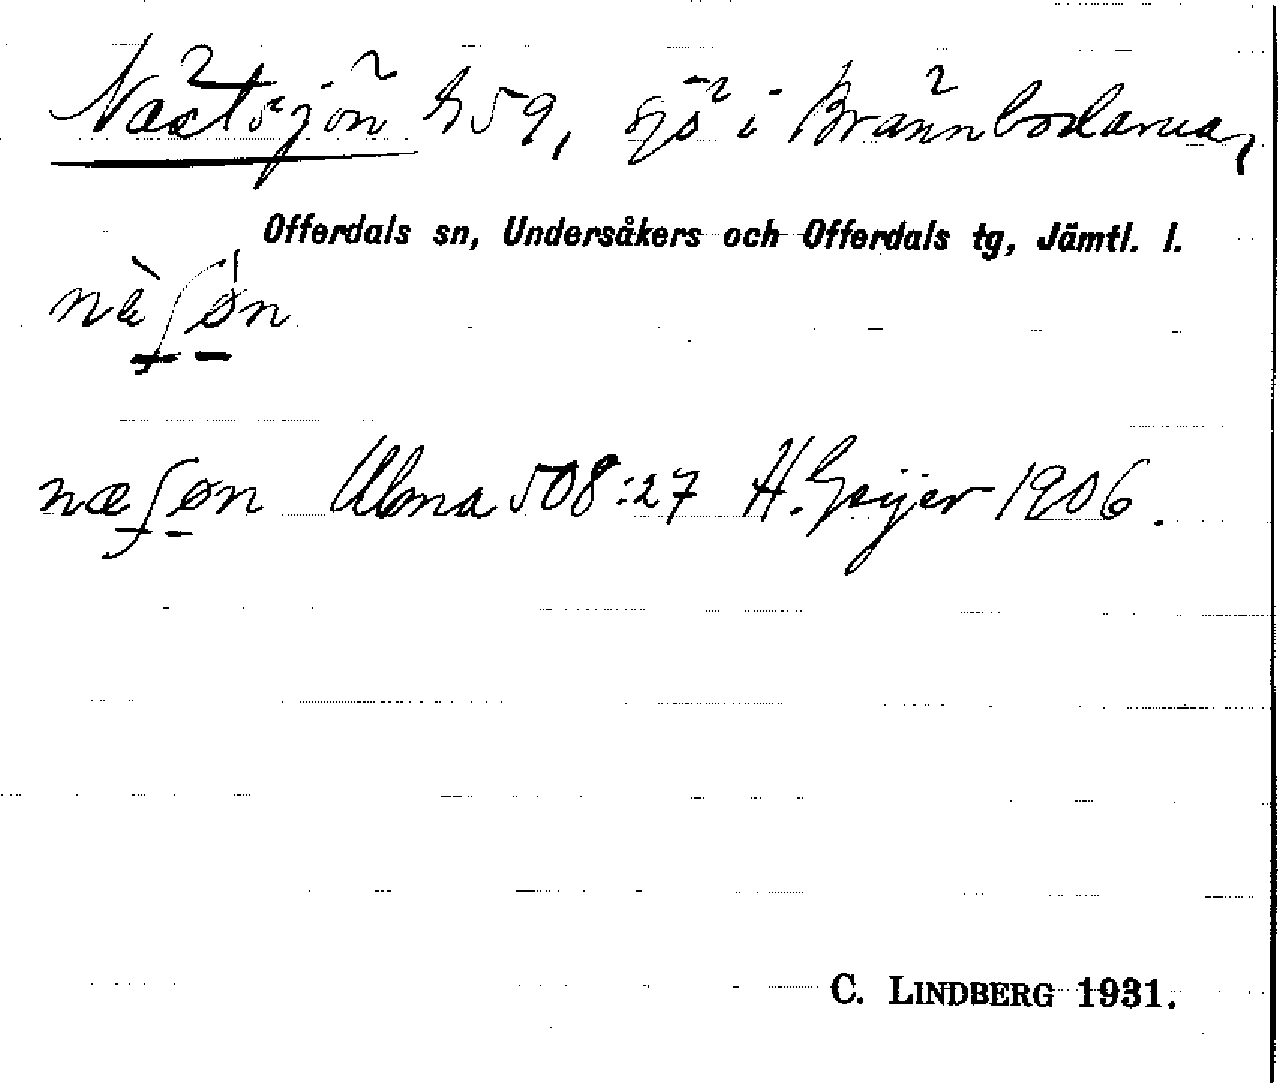 Nästsjön h59, sjö i Brännbodarna,
Offerdals sn, Undersåkers och Offerdals tg, Jämtl. l.
næ̀ʃøn
næʃøn Ulma 508:27 H. Geijer 1906.
C. LINDBERG 1931.